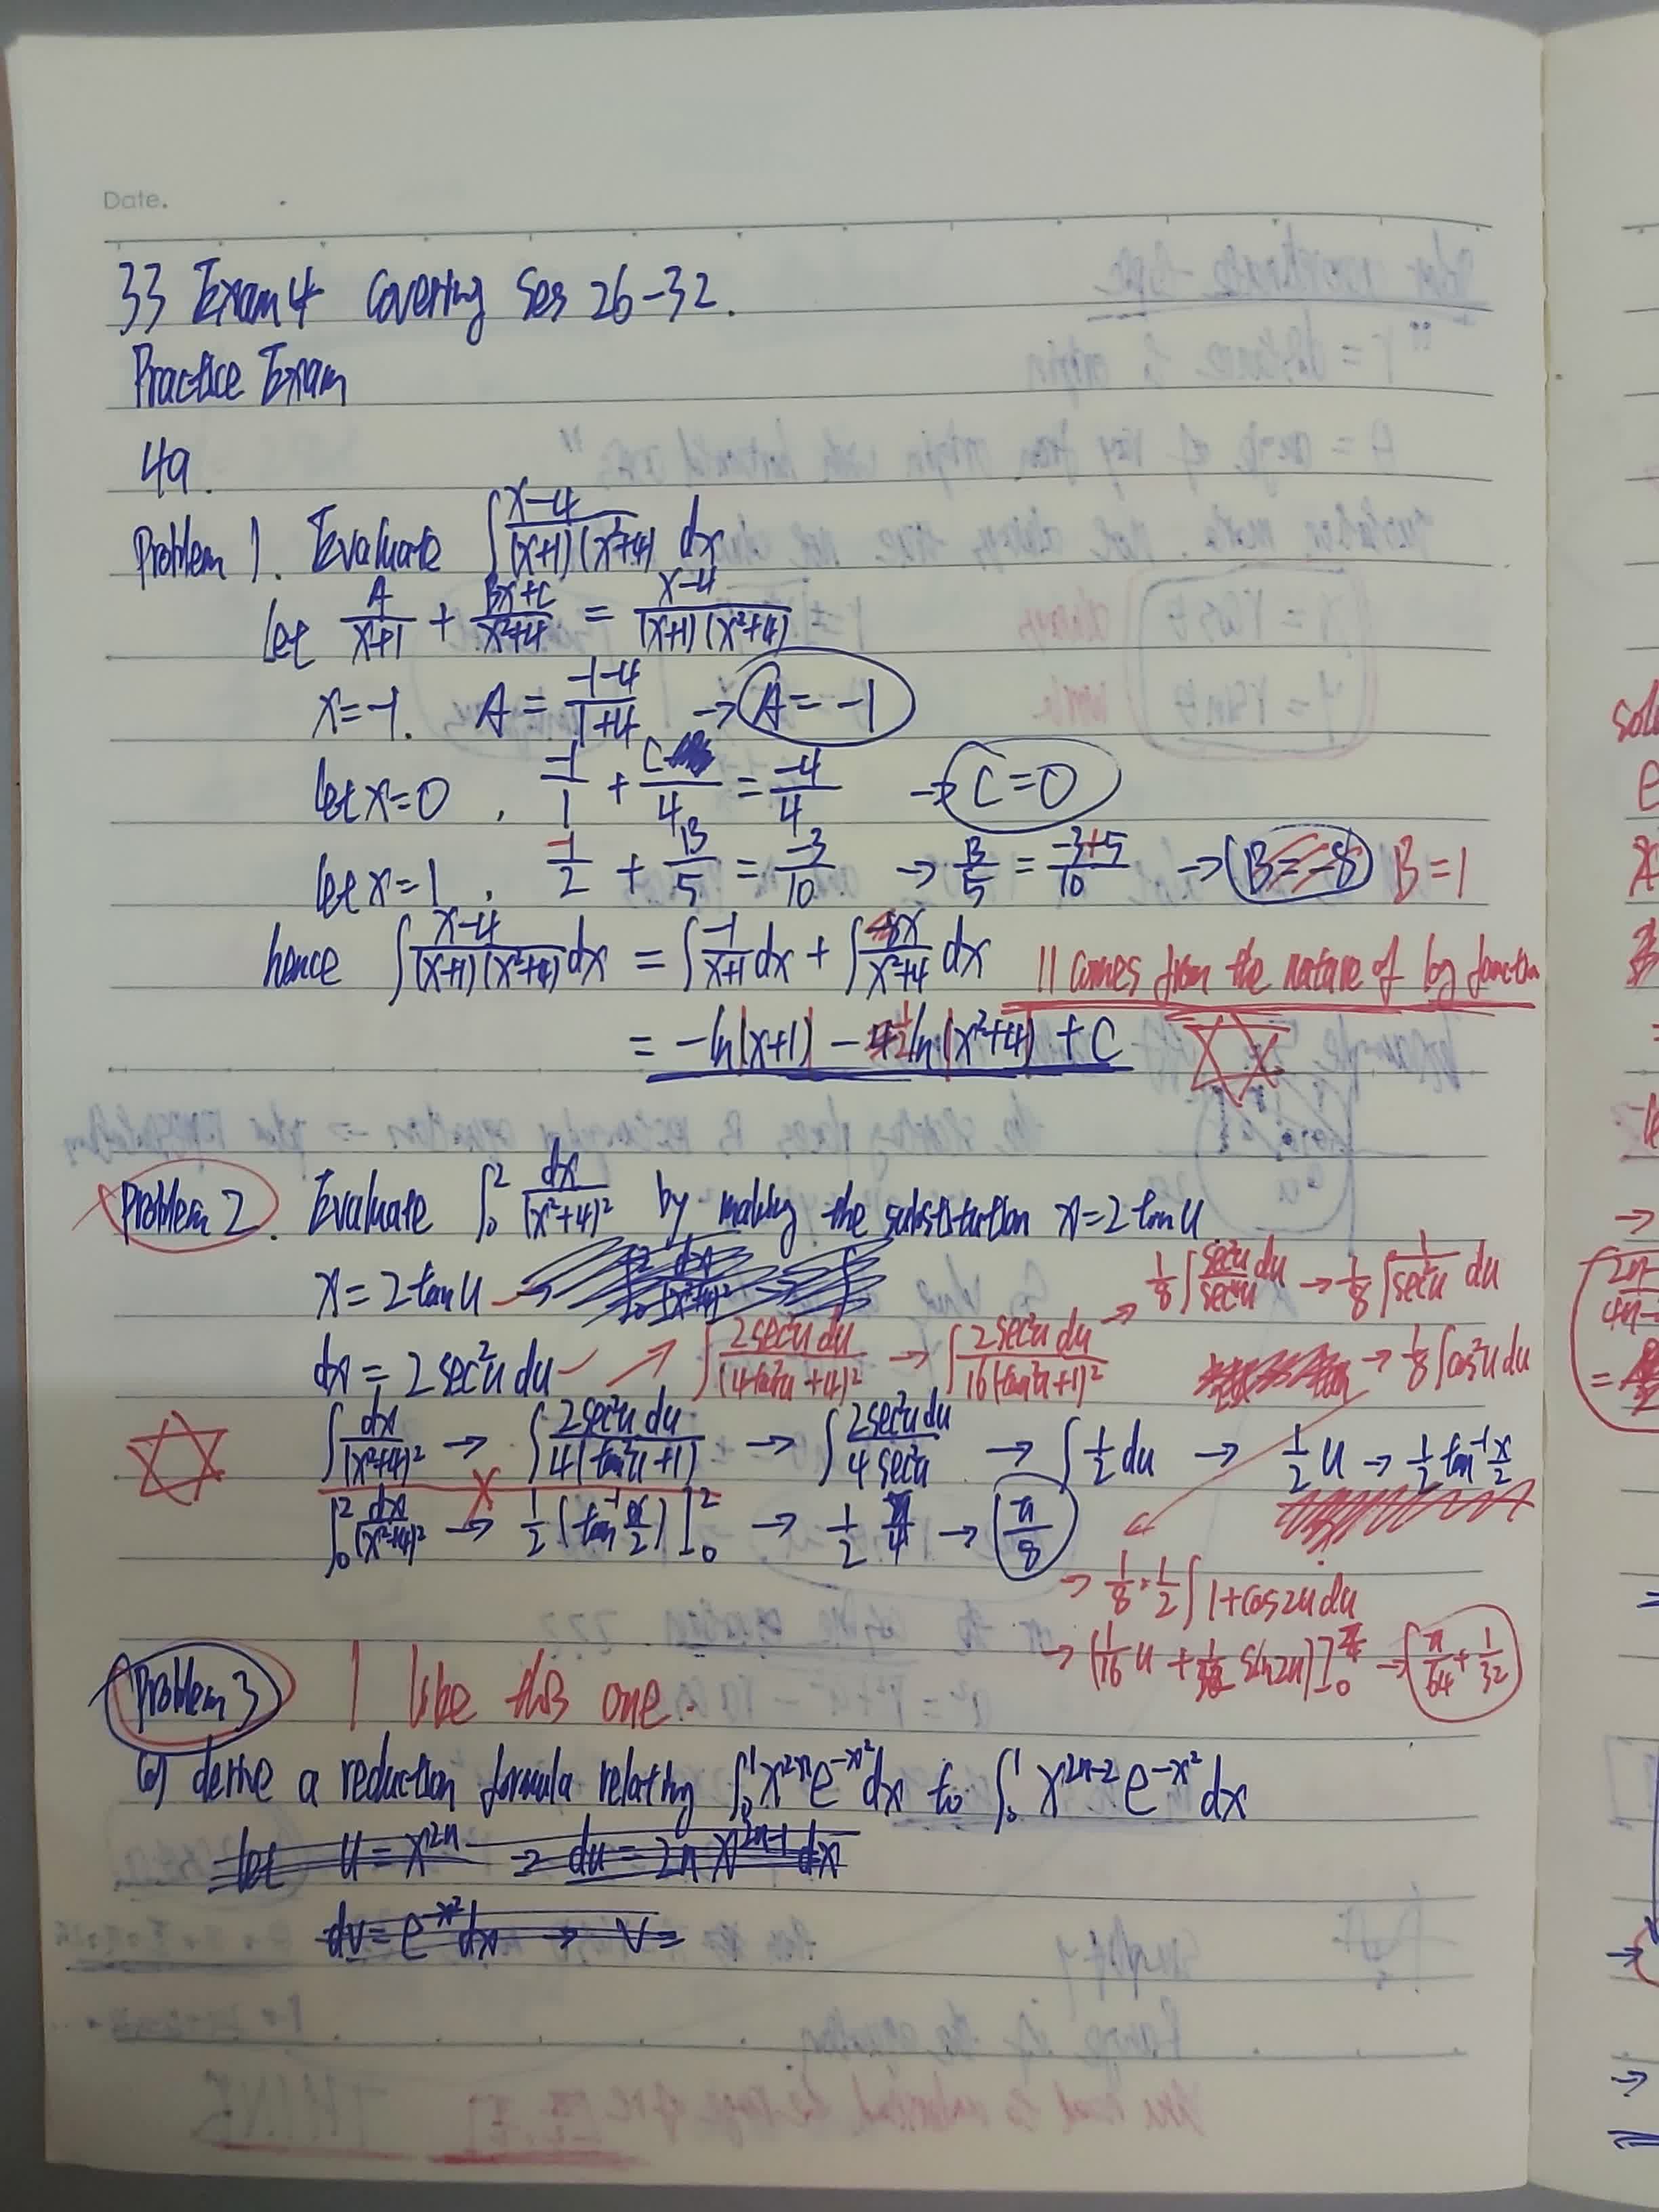 Date.
33 Exam 4 covering Ses 26-32.
Practice Exam
4a.
Problem 1. Evaluate ∫ (x-4)/((x+1)(x²+4)) dx
let A/(x+1) + (Bx+C)/(x²+4) = (x-4)/((x+1)(x²+4))
x=-1. A = (-1-4)/(1+4) → A=-1
let x=0, -1/1 + C/4 = -4/4 → C=0
let x=1, -1/2 + B/5 = -3/10 → B/5 = (-3+5)/10 → B=-8 B=1
hence ∫ (x-4)/((x+1)(x²+4)) dx = ∫ -1/(x+1) dx + ∫ x/(x²+4) dx || comes from the nature of log function
= -ln|x+1| - 1/2 ln|x²+4| + C
Problem 2. Evaluate ∫₀² dx/(x²+4)² by making the substitution x=2tan u
x=2tan u → 1/8 ∫ sec²u du/sec⁴u → 1/8 ∫ 1/sec²u du
dx = 2sec²u du → ∫ 2sec²u du/(4tan²u+4)² → ∫ 2sec²u du/16(tan²u+1)² → 1/8 ∫cos²u du
∫ dx/(x²+4)² → ∫ 2sec²u du/4(tan²u+1) → ∫ 2sec²u du/4sec²u → ∫ 1/2 du → 1/2 u → 1/2 tan⁻¹ x/2
∫₀² dx/(x²+4)² → 1/2 (tan⁻¹ x/2) ]₀² → 1/2 π/4 → π/8
→ 1/8 · 1/2 ∫ 1+cos2u du
→ (1/16 u + 1/32 sin2u) ]₀^π/4 → π/64 + 1/32
Problem 3 I like this one.
(a) derive a reduction formula relating ∫₀¹ x²ⁿe^-x² dx to ∫₀¹ x²ⁿ⁻² e^-x² dx
let u = x²ⁿ → du = 2n x²ⁿ⁻¹ dx
dv = e^-x² dx → v =